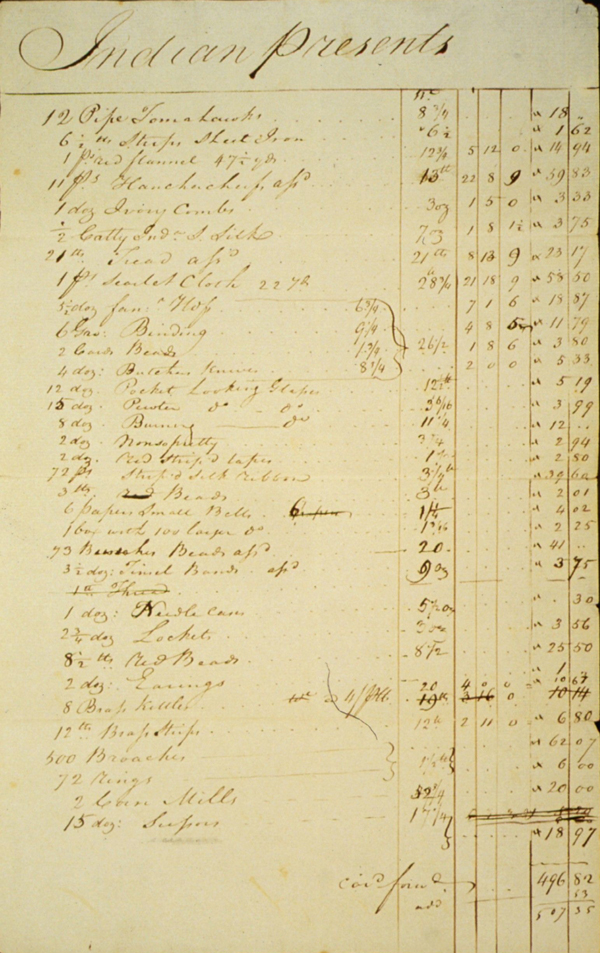 Indian Presents
12 Pipe Tomahawks 8 3/4 " 18 "
6 1/2 lbs Strips Sheet Iron " 6 1/2 " 1 62
1 ps red flannel 47 1/2 yds 12 3/4 5 12 0 " 14 94
11 ps Hanckerchiefs assd 13 lb 22 8 9 " 59 83
1 doz Ivory Combs 3 oz 1 5 0 " 3 33
1/2 Catty Inda S. Silk 7 oz 1 8 1 1/2 " 3 75
21 lbs Tread assd 21 lb 8 13 9 " 23 17
1 ps Scarlet Cloth 22 yds 28 3/4 21 18 9 " 58 50
5 1/2 doz fany Hdfs 6 3/4 7 1 6 " 18 87
6 Gro: Binding 9 1/4 4 8 5 " 11 79
2 Cards Beads 1 3/4 26 1/2 1 8 6 " 3 80
4 doz: Butcher Knives 8 3/4 2 0 0 " 5 33
12 doz. Pocket Looking Glasses 12 1/2 lb " 5 19
15 doz. Pewter do do 3 6/16 " 3 99
8 doz Burning do 11 1/4 " 12 ..
2 doz Nonsopretty 3 1/4 " 2 94
2 doz. red strip'd tapes " 2 80
72 ps Strip'd silk ribbon " 39 60
3 lbs red Beads 3 lb " 2 01
6 papers Small Bells 6 " 4 02
1 box with 100 larger do 1 " 2 25
73 Bunches Beads assd 20 " 41 ..
3 1/2 doz: Tinsel Bands assd 9 oz " 3 75
1 lb Thread
1 doz: Needle Cases " 30
2 3/4 doz Lockets 3 oz " 3 56
8 1/2 lbs Red Beads 8 1/2 " 25 50
2 doz: Earings " 1
8 Brass Kettles 20 4 0 0 10 67
19 lb 3 16 0 10 14
12 lb Brass Strips 12 lb 2 11 0 " 6 80
500 Broaches " 62 07
72 Rings " 6 00
2 Corn Mills 52 3/4 " 20 00
15 doz: Scissors 17 1/4 " 18 97
card forwd 496 82
add 53
507 35